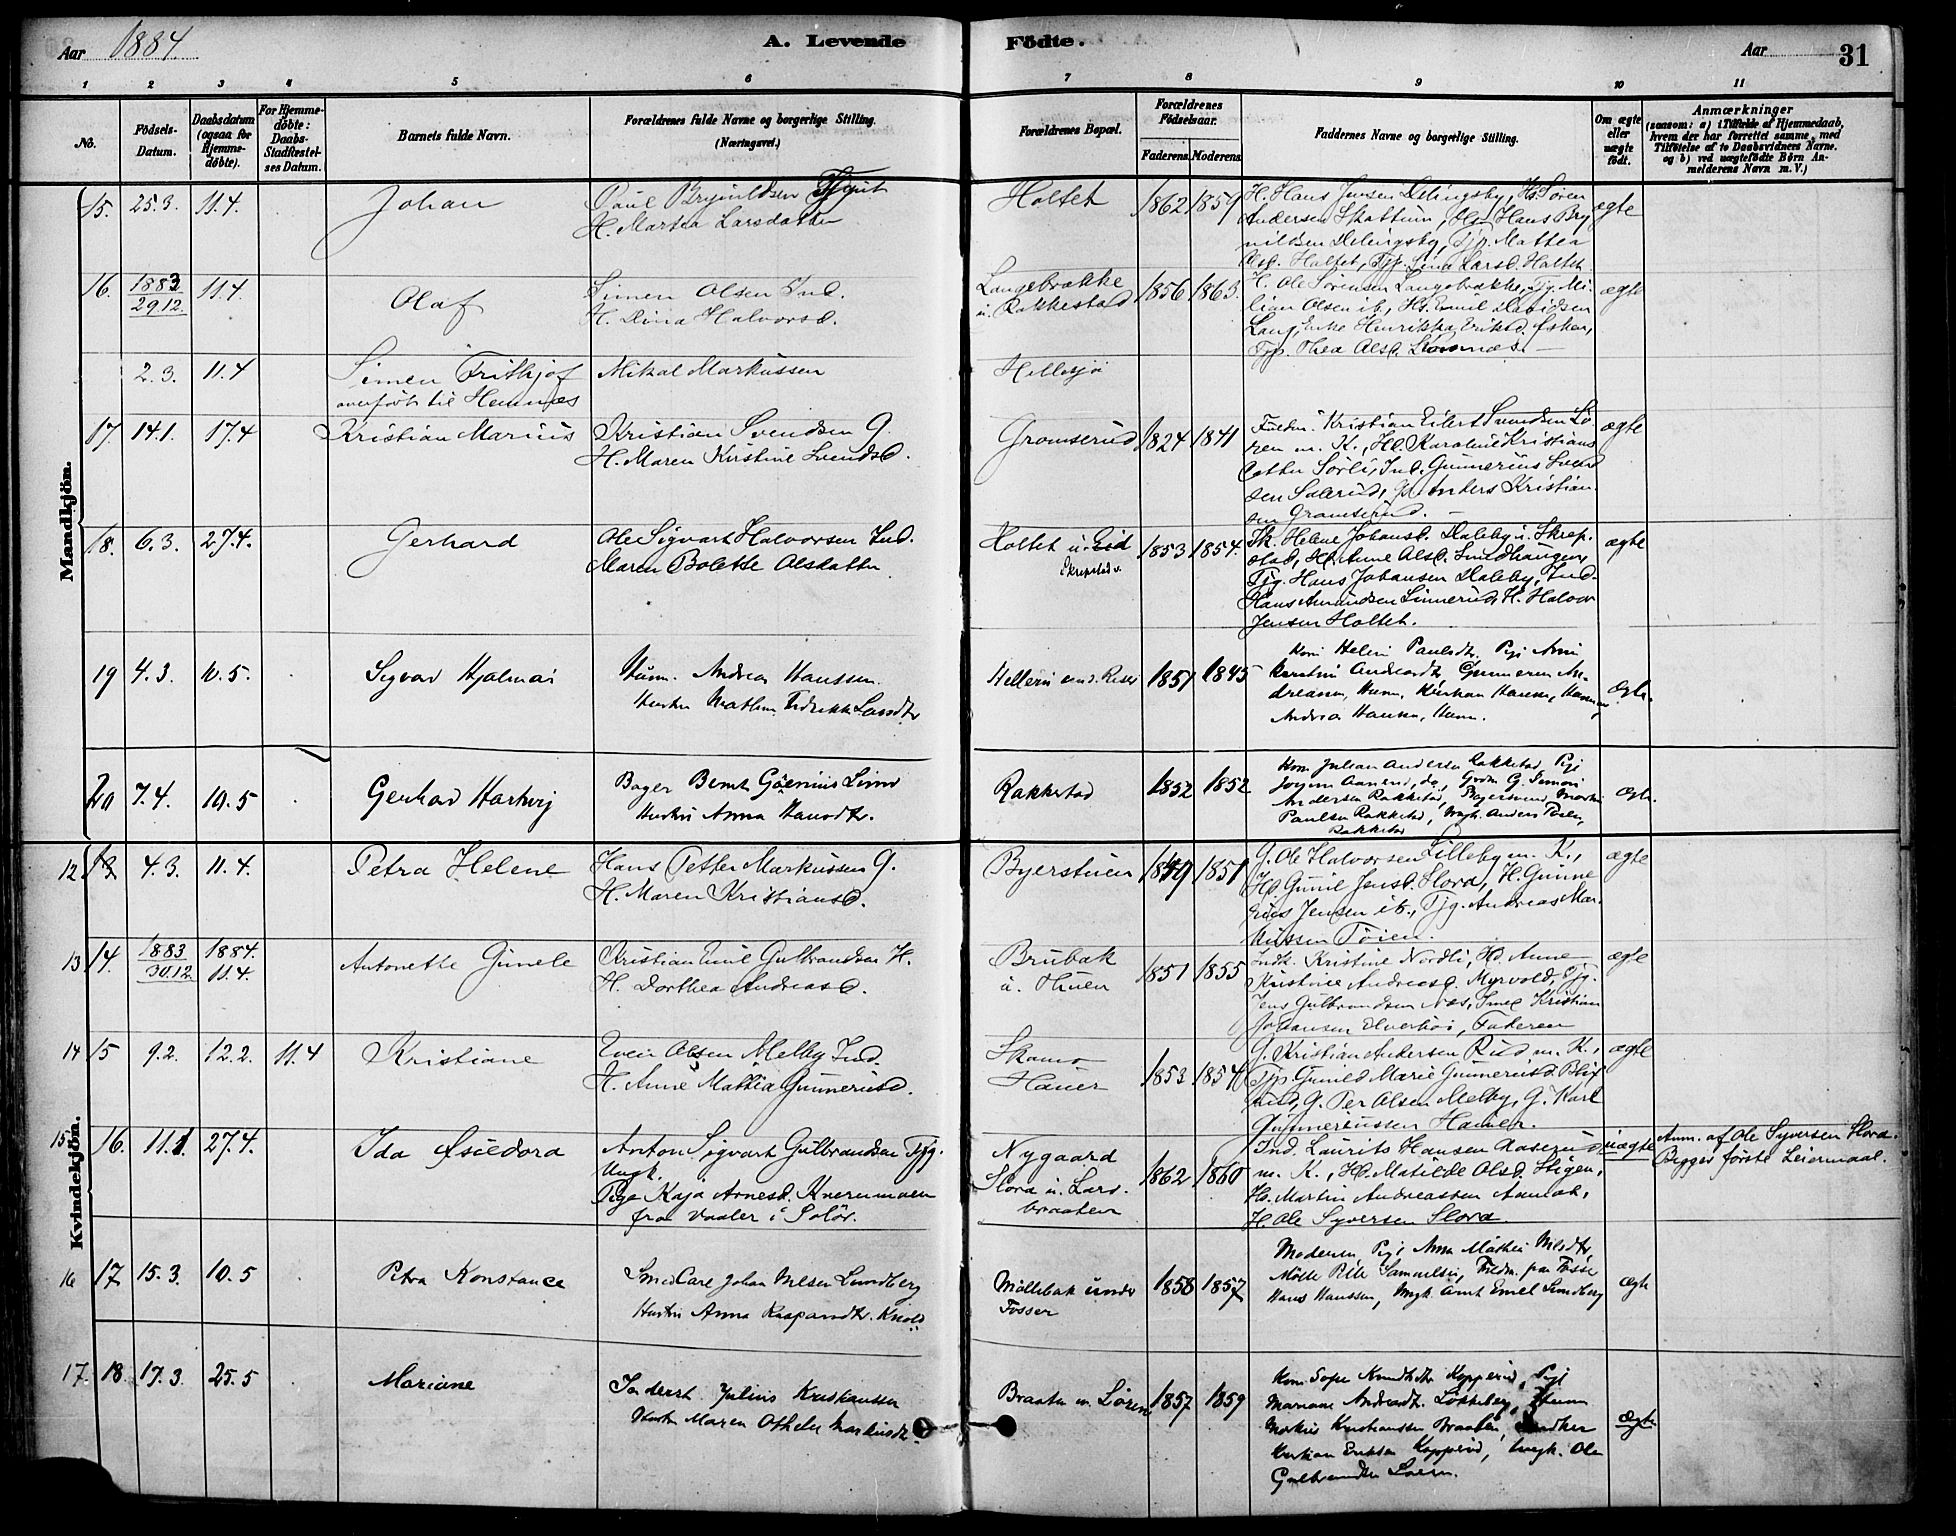 Aar 1884.
A. Levende Födte.
Aar 31
1 2 3 4 5 6 7 8 9 10 11
No.
Födsels-Datum.
Daabsdatum (ogsaa for Hjemme-döbte).
For Hjemme-döbte: Daabs-Stadfæstel-ses Datum.
Barnets fulde Navn.
Forældrenes fulde Navne og borgerlige Stilling. (Næringsvei.)
Forældrenes Bopæl.
Forældrenes Födselsaar.
Faderens Moderens
Faddernes Navne og borgerlige Stilling.
Om ægte eller uægte födt.
Anmærkninger
(saasom: a) i Tilfælde af Hjemmedaab,
hvem der har forrettet samme, med
Tilföielse af to Daabsvidners Navne.
og b) ved uægtefödte Börn An-
melderens Navn m. V.)
Mandkjön.
15. 25.3. 11.4. Johan
Paul Brynildsen
H. Martea Larsdatter
Holtet 1862 1859
H. Hans Jensen Delingsby, Hs. Sören
Andersen Skattum, Hans Bry
nildsen Delingsby, Tjp. Mattea
Olsd. Holtet, Tjp. Lina Larsd. Holtet
ægte
16. 1883 29.12. 11.4. Olaf
Simen Olsen Ind.
H. Dina Halvorsd.
Langebrække
u. Rakkestad 1856 1863.
H. Ole Sörensen Langebrække, Tjg. Mi-
lian Olsen ib., Hs. Emil Davidsen
Lang, Enke Henrikka Eriksd. Asken,
Tjp. Thea Olsd.
ægte
2.3. 11.4 Simen Frithjof
overfört til Hemnes
Mikal Markussen
Hellesjö
17 14.1. 17.4 Kristian Marius
Kristian Svendsen G.
H. Maren Kirstine Svendsd.
Gromserud 1824 1841
Kristian Eilert Svendsen Sö-
ren m. K., Hd. Karoline Kristians
datter Sörli, Ind. Gunnerius Svend
sen Solerud, Anders Kristian
sen Gromserud.
ægte
18. 6.3. 27.4. Gerhard
Ole Sigvart Halvorsen Ind.
Maren Bolette Olsdatter
Holtet u. Eid
Skrepstad v. 1853 1854.
Helene Johansd. Daleby u. Skrep-
stad, Hd. Anne Olsd. Smedhaugen,
Tjg. Hans Johansen Daleby, Ind.
Hans Amundsen Linnerud, H. Halvor
Jensen Holtet.
ægte
19 4.3. 10.5. Sigvar Hjalmar
Husm. Andreas Hanssen.
Hustru
Helleru 1851 1845
Kone Helene Paulsdtr. Pige Anne
Gunnerius An-
dreassen, Husm. Kristian Hansen,
Andreas Hansen, Husm.
Ægte.
20 7.4. 10.5 Gerhard Hartvig
Bager Bernt Lund
Hustru Anna Hansdtr.
Rakkestad 1852 1852
Kone Juliane Andersen Rakkestad, Pige
Jörgine do, Gaardm. G. Simon
Andersen Rakkestad, Bagersvend Martin
Paulsen Rakkestad, Ungk. Anders
Rakkestad
Ægte.
Kvindekjön.
12 13 4.3. 11.4. Petra Helene
Hans Petter Markussen G.
H. Maren Kristiansd.
Byerstuen 1849 1851
G. Ole Halvorsen Lilleby m. K.,
Hd. Gunil Jensd. Slora, H. Gunne
rius Jensen ib., Tjg. Andreas Mar-
kussen Töien.
ægte
13 14. 1883 30.12. 1884. 11.4. Antonette Gunele
Kristian Emil Gulbrandsen H.
H. Dorthea Andreasd.
Brubak
u. Huen 1851 1855
Indk. Kristine Nordli, Hd. Anne
Kristine Andreasd. Myrvold, Tjg.
Jens Gulbrandsen Næs, Smed Kristian
Johansen, Faderen
ægte
14 15 9.2. 12.2. 11.4 Kristiane
Olsen Melby Ind.
H. Anne Mathia Gunneriusd.
Skamo
Haner 1853 1854
G. Kristian Andersen Rud m. K.,
Tjp. Gunild Marie Gunneriusd.
G. Per Olsen Melby, G. Karl
Gunneriussen Haner.
ægte
15 16. 11.1. 27.4. Ida Isiedora
Anton Sigvart Gulbrandsen Tjg.
Ungk.
Pige Kaja Arnesd. Knerumoen
fra Vaaler i Solör.
Nygaard
Slora u. Lars.
braaten 1862 1860
Ind. Laurits Hansen Aaserud
m. K., Hd. Matilde Olsd. Stigen,
Hs. Martin Andreassen Aamot,
H. Ole Syversen Slora.
uægte
Anm. af Ole Syversen Slora.
Begges förste Leiermaal.
16 17 15.3. 10.5 Petra Konstance
Smed Carl Johan Nilsen Lundberg
Hustru Anna Kasparsdtr.
Möllebak under
Fosser 1858 1857
Moderen, Pige Anna Mathea Nilsdtr.
Samuelsen, fra Fosser
Hans Hanssen, Ungk. Arnt Emil Lundberg
Ægte
17. 18. 17.3. 25.5 Mariane
Inderst Julius Kristiansen
Hustru Maren Othelie Markusdtr.
Braaten u. Lören 1857 1859
Kone Sofie Knudsdtr. Kopperud, Pige
Mariane Andreasdtr. Lökkeberg, Husm.
Markus Kristianssen Braaten,
Kristian Eriksen Kopperud, Ungk. Ole
Gulbrandsen Lören.
Ægte